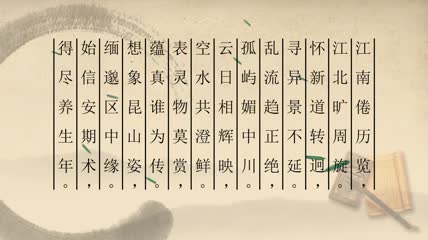 江南倦历览，
江北旷周旋。
怀新道转迥，
寻异景不延。
乱流趋正绝，
孤屿媚中川。
云日相辉映，
空水共澄鲜。
表灵物莫赏，
蕴真谁为传。
想象昆山姿，
缅邈区中缘。
始信安期术，
得尽养生年。